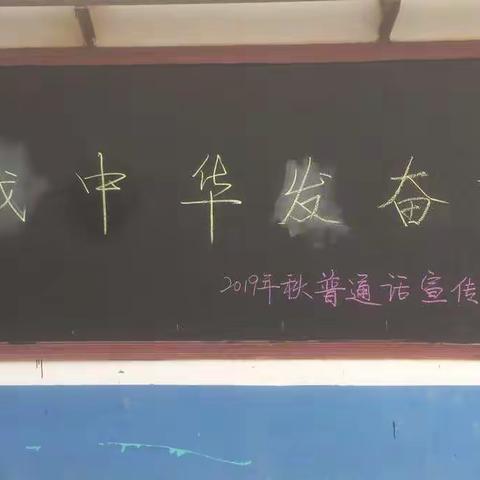 我中华发奋
2019年秋普通话宣传